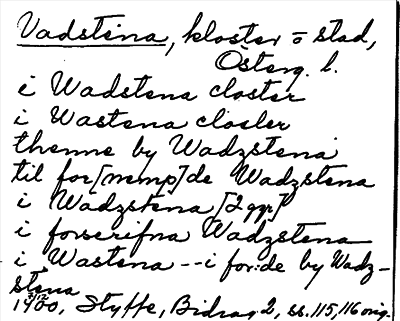 Vadstena, kloster = stad,
Österg. l.
i Wadstena closter
i Wastena closter
thenne by Wadzstena
til for[nemp]de Wadzstena
i Wadzstena [2 ggr]
i forscrifna Wadzstena
i Wastena -- i for:de by Wadz-
stena
1400, Styffe, Bidrag 2, ss. 115, 116 orig.